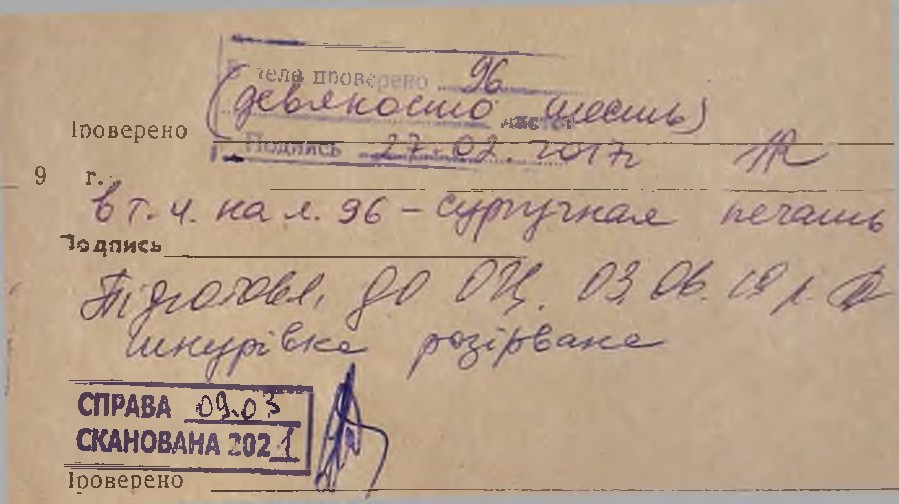 деле проверено 96
(девяносто шесть)
листов
Проверено
Подпись 27.02.2017г
9 г.
в т.ч. на л. 96 – сургучная печать
Подпись
Підготовл. до ОЦ. 03.06.19 р.
шнурівка розірвана
СПРАВА 09.03
СКАНОВАНА 2021
Проверено